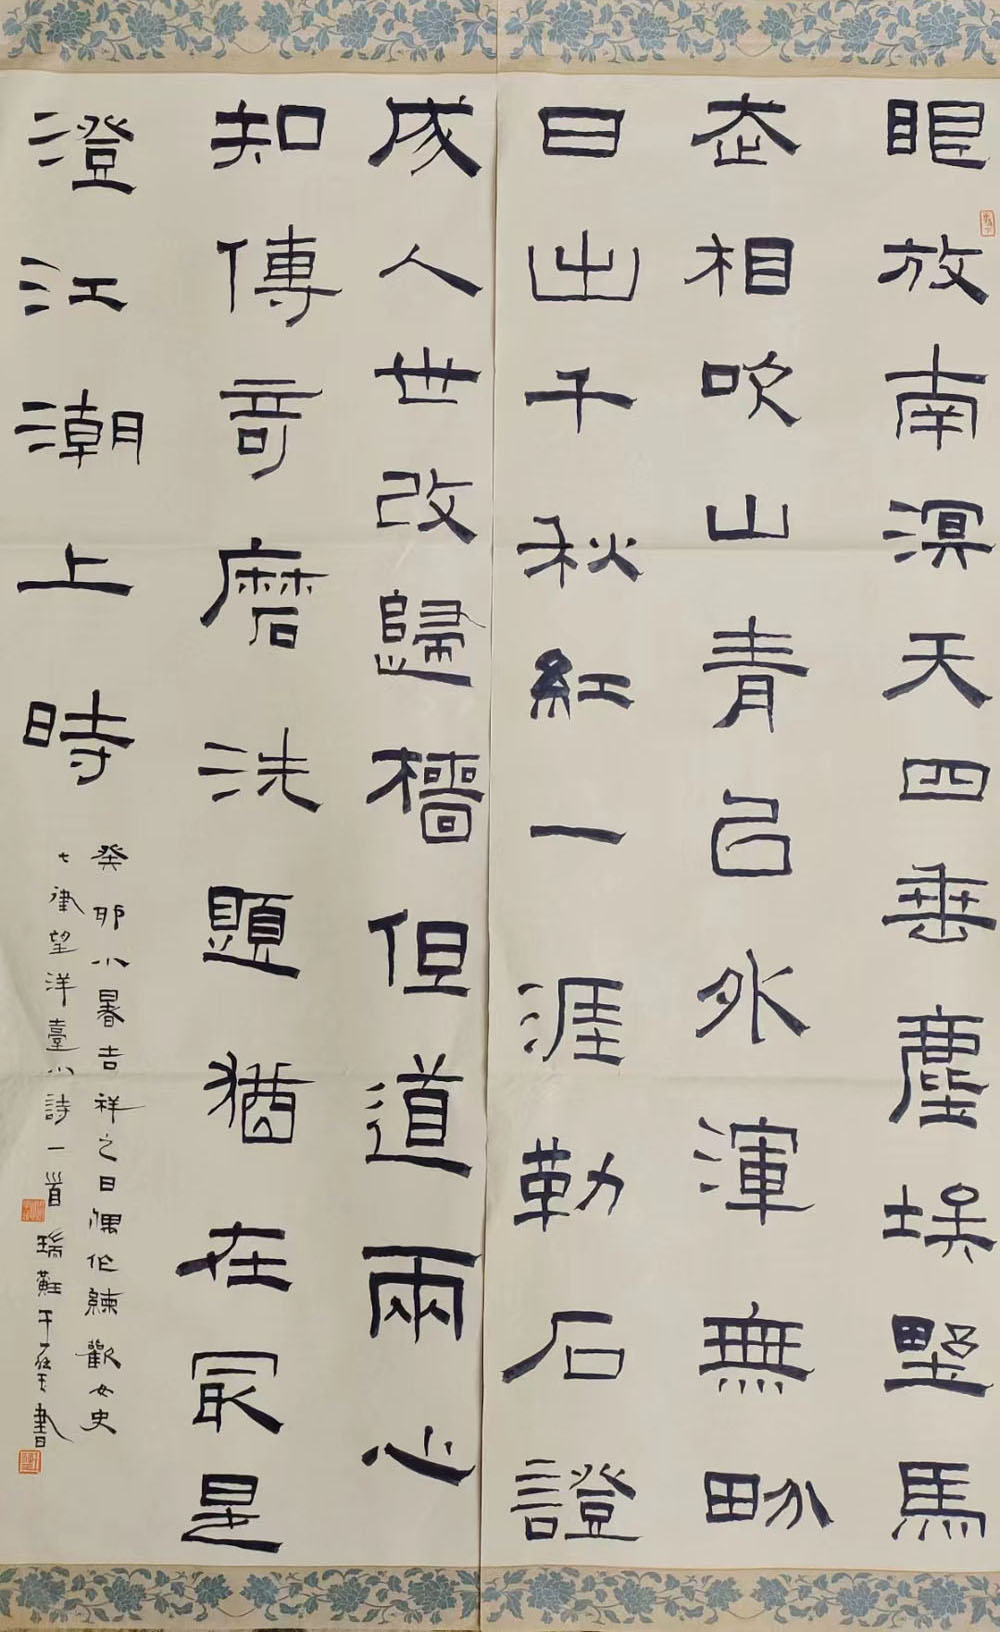 眼放南溟天四垂塵埃墅馬
相吹山青㠯外渾無畍
日出千秋紅一涯勒石證
成人世改歸檣但道兩心
知傳奇磨洗題猶在冣是
澄江潮上時
癸卯小暑吉祥之日偶作歡女史
七律望洋臺小詩一首 瑞于書